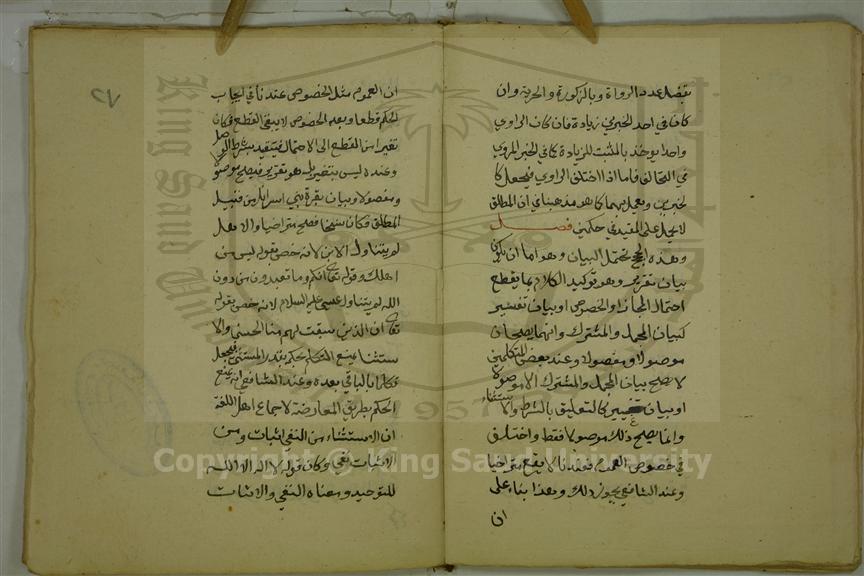 بفضل عدد الرواة وبالذكورة والحرية وان
كان في احد الخبرين زيادة فان كان الراوي
واحدا يوخذ بالمثبت للزيادة كما في الخبر المروي
في التحالف فاما اذا اختلف الراوي فيجعل كا
لخبرين ويعمل بهما كما هو مذهبنا في ان المطلق
لا يحمل على المقيد في حكمين فصل
وهذه الحجج تحتمل البيان وهو اما ان يكون
بيان تقرير وهو توكيد الكلام بما يقطع
احتمال المجاز او الخصوص او بيان تفسير
كبيان المجمل والمشترك وانهما يصحان
موصولا ومفصولا وعند بعض المتكلمين
لا يصح بيان المجمل والمشترك الا موصولا
او بيان تغيير كالتعليق بالشرط والاستثناء
وانما يصح ذلك موصولا فقط واختلف
في خصوص العموم فعندنا لا يقع متراخيا
وعند الشافعي يجوز ذلك وهذا بناء على
ان
٢٧
ان العموم مثل الخصوص عندنا في ايجاب
الحكم قطعا وبعد الخصوص لا يبقى القطع فكان
تغيرا من القطع الى الاحتمال فيتقيد بشرط الوصل
وعنده ليس بتغيير بل هو تقرير فيصح موصولا
ومفصولا وبيان بقرة بني اسرائيل من قبيل
المطلق فكان نسخا فصح متراخيا والاهل
لم يتناول الابن لانه خص بقوله ليس من
اهلك وقوله تعالى انكم وما تعبدون من دون
الله لم يتناول عيسى عليه السلام لانه خص بقوله
تعالى ان الذين سبقت لهم منا الحسنى والا
ستثناء يمنع التكلم بحكمه بقدر المستثنى فيجعل
تكلما بالباقي بعده وعند الشافعي انه يمنع
الحكم بطريق المعارضة لاجماع اهل اللغة
ان الاستثناء من النفي اثبات ومن
الاثبات نفي وكان قوله لا اله الا الله
للتوحيد ومعناه النفي والاثبات
Copyright © King Saud University
King Saud University
1957